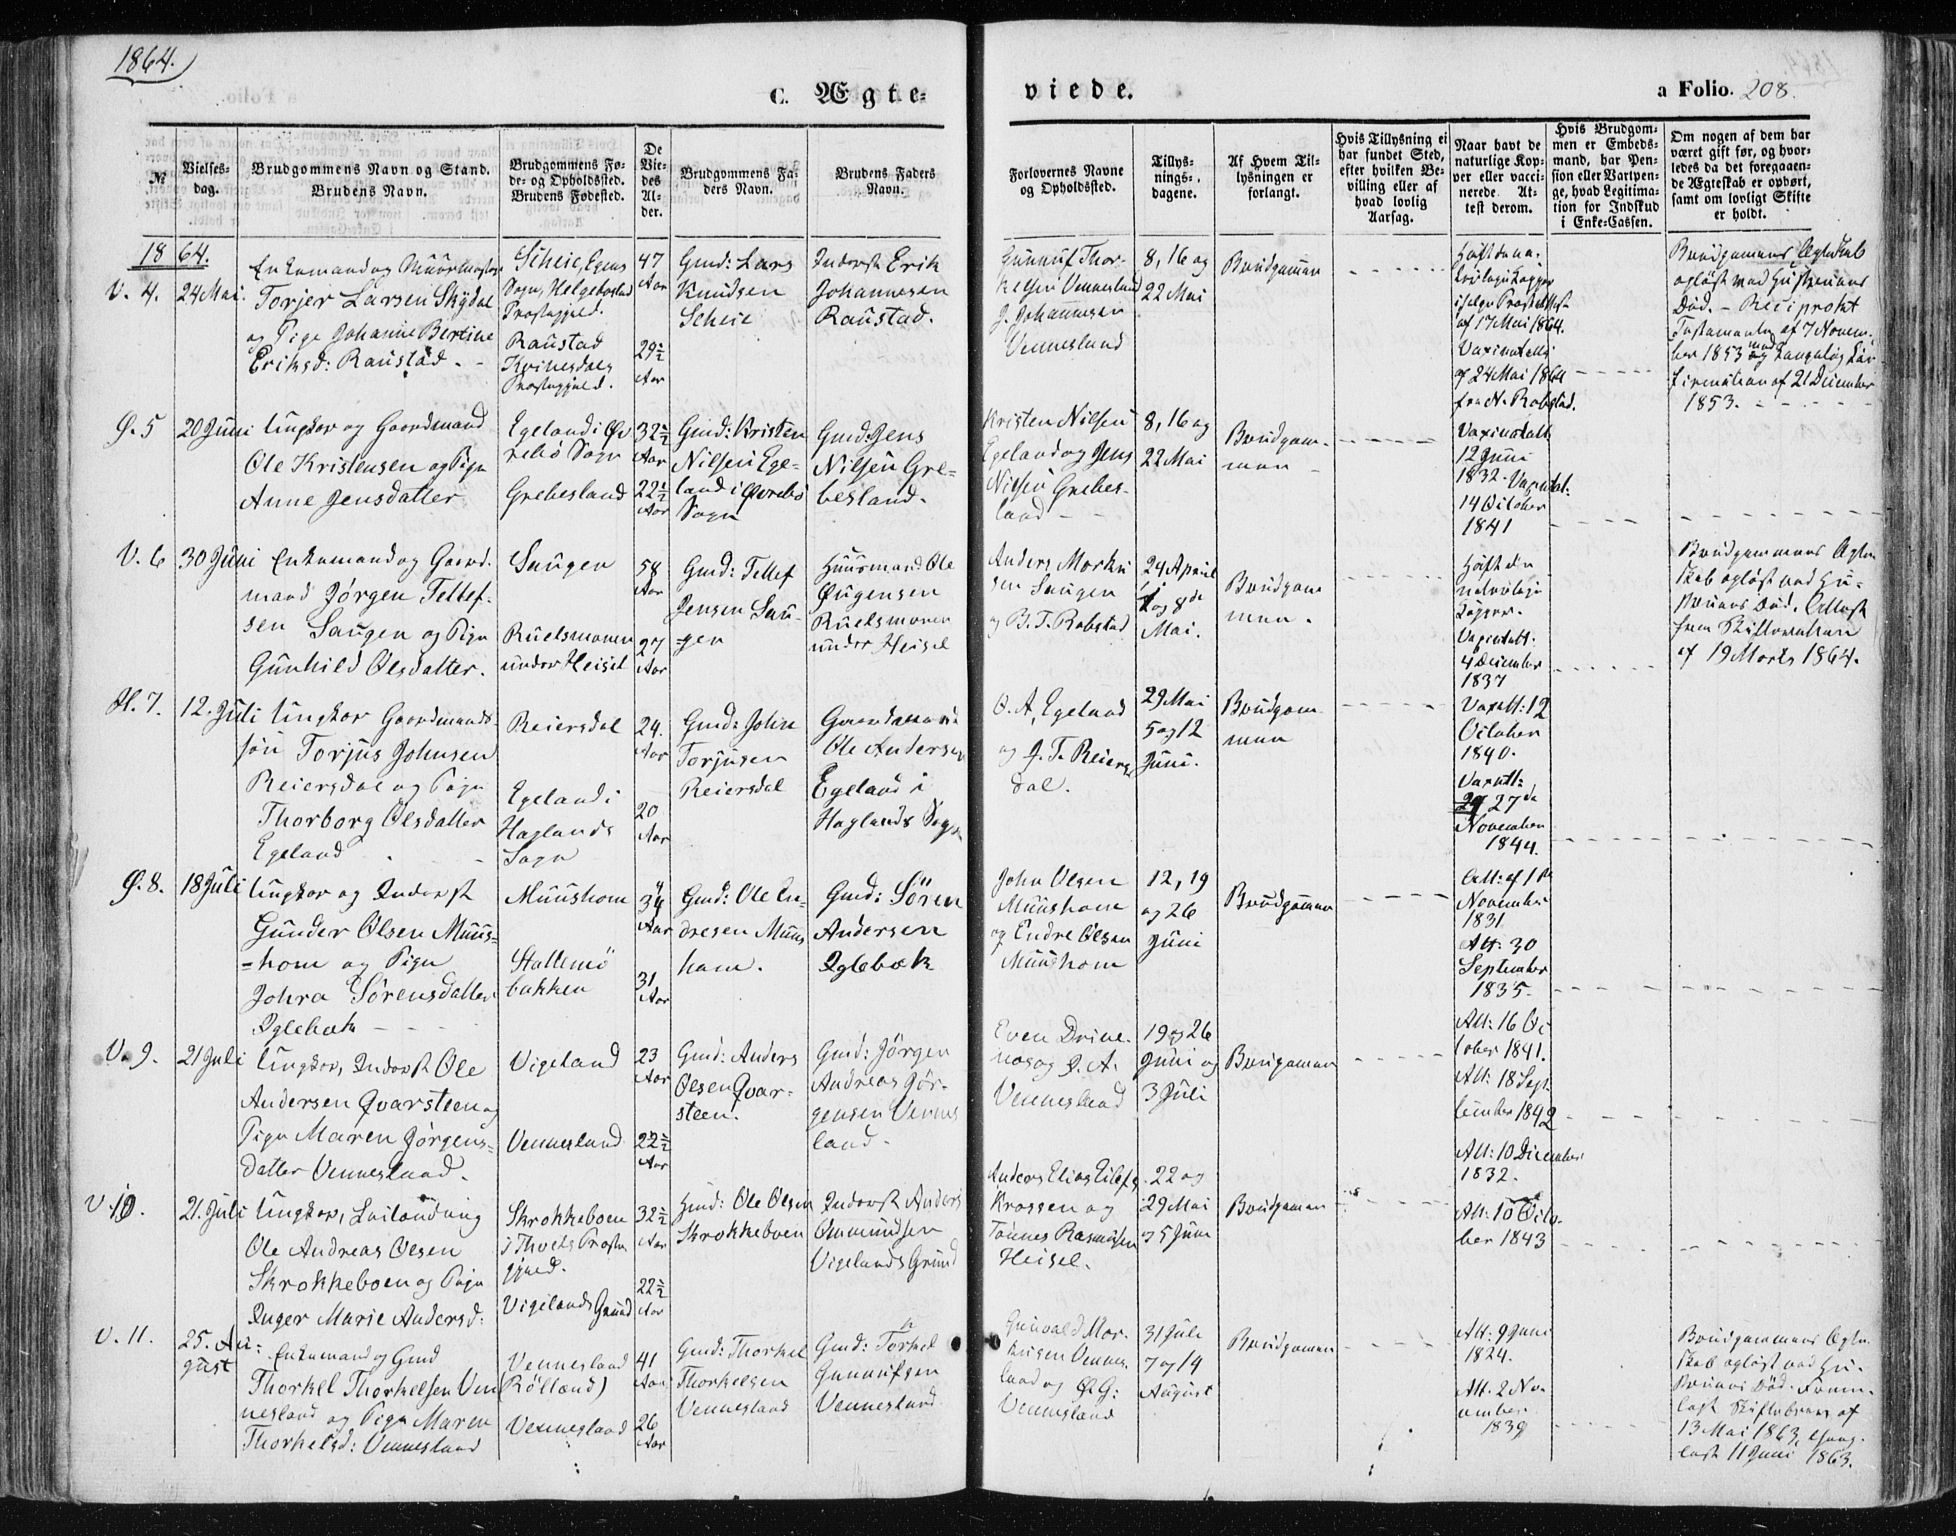 1864.
C. Ægte-
viede.
a Folio. 208.
№
Vielses-
dag.
Brudgommens Navn og Stand.
Brudens Navn.
Brudgommens Fø-
de- og Opholdssted.
Brudens Fødested.
De
Vie-
des
Al-
der.
Brudgommens Fa-
ders Navn.
Brudens Faders
Navn.
Forlovernes Navne
og Opholdssted.
Tillys-
nings-
dagene.
Af Hvem Til-
lysningen er
forlangt.
Hvis Tillysning ei
har fundet Sted,
efter hvilken Be-
villing eller af
hvad lovlig
Aarsag.
Naar havt de
naturlige Kop-
per eller vacci-
nerede. At-
test derom.
Hvis Brudgom-
men er Embeds-
mand, har Pen-
sion eller Vartpen-
ge, hvad Legitima-
tion for Indskud
i Enke-Cassen.
Om nogen af dem har
været gift før, og hvor-
ledes da det foregaaen-
de Ægteskab er ophørt,
samt om lovligt Skifte
er holdt.
1864.
V. 4.
24 Mai.
Enkemand og Muurmester
Torjer Larsen Skydal
og Pige Johanne Bertine
Eriksd: Raustad. -
Scheie, Egens
Sogn, Helgebostad
Præstegjeld.
Raustad
Kvinesdals
Præstegjeld.
47
Aar
29½
Aar
Gmd: Lars
Knudsen
Scheie
Inderst Erik
Johannesen
Raustad.
Gunnuf Thor-
kelsen Vennesland
J. Johannesen
Vennesland
8, 16 og
22 Mai
Brudgommen
Havt de na-
turlige Kopper
ifølge Præsteattest
af 17 Mai 1864.
Vaxinatt:
af 24 Mai 1864
fra N. Robstad.
Brudgommens Ægteskab
opløst ved Hustruens
Død. - Reciprokt
Testamente af 7 Novem-
ber 1853 med Kongelig Con-
firmation af 21 December
1853.
Ø. 5
20 Juni
Ungkar og Gaardmand
Ole Kristensen og Pige
Anne Jensdatter
Egeland i Øv
rebø Sogn
Grebesland
32½
Aar
22½
Aar
Gmd: Kristen
Nilsen Ege-
land i Øvrebø
Sogn
Gmd: Jens
Nilsen Gre-
besland.
Kristen Nilsen
Egeland og Jens
Nilsen Grebes-
land
8, 16 og
22 Mai
Brudgom-
men
Vaxinatt:
12 Juni
1832. Vaxinatt:
14 October
1841
V. 6
30 Juni
Enkemand og Gaard-
mand Jørgen Tellef-
sen Saugen og Pige
Gunhild Olsdatter.
Saugen
Ruelsmonen
under Heisel
58
Aar
27
Aar
Gmd: Tellef
Jensen Sau-
gen
Huusmand Ole
Øugensen
Ruelsmonen
under Heisel
Anders Mortin
sen Saugen
og B. T. Robstad
24 April
1 og 8de
Mai.
Brudgom
men.
Havt de
naturlige
Kopper.
Vaxinatt:
4 December
1837
Brudgommens Ægte-
skab opløst ved Hu-
struens Død. Attest
fra Skifteretten
af 19 Marts 1864.
H. 7.
12. Juli
Ungkar Gaardmands-
søn Torjus Johnsen
Reiersdal og Pige
Thorborg Olsdatter
Egeland
Reiersdal
Egeland i
Hæglands
Sogn
24.
Aar
20
Aar
Gmd: John
Torjusen
Reiersdal
Gaardmand
Ole Andersen
Egeland i
Hæglands Sogn
O. A. Egeland
og J. T. Reiers
dal.
29 Mai
5 og 12
Juni.
Brudgom
men
Vaxatt: 12
October
1840.
Vaxatt:
27de
November
1844.
Ø. 8.
18 Juli
Ungkar og Inderst
Gunder Olsen Muus-
=hom og Pige
Johra Sörensdatter
Iglebæk
Muushom
Stallemö
bakken
34
Aar
31
Aar
Gmd: Ole En-
dresen Muus
hom.
Gmd: Sören
Andersen
Iglebæk
John Olsen
Muushom
og Endre Olsen
Muushom
12, 19
og 26
Juni
Brudgommen
Att: af 1ste
November
1831
Att: 30
September
1835.
V. 9.
21 Juli
Ungkar, Inderst Ole
Andersen Qvarsteen og
Pige Maren Jørgens-
datter Vennesland.
Vigeland
Vennesland
23
Aar
22½
Aar
Gmd: Anders
Olsen Qvar-
steen.
Gmd: Jörgen
Andreas Jör-
gensen Vennes
land.
Even Drive-
næs og J. A.
Vennesland
19 og 26
Juni og
3 Juli
Brudgommen
Att: 16 Oc
tober 1841.
Att: 18 Sept
tember 1842
V. 10.
21. Juli
Ungkar, Leilænding
Ole Andreas Olsen
Skrokkeboen og Pige
Inger Marie Andersd:
Skrokkeboen
i Thveds Præste
gjeld.
Vigelands Grund
32½
Aar
22½
Aar
Gmd: Ole Olsen
Skrokkeboen
Inderst Anders
Ommundsen
Vigelands Grund
Anders Elias Eilefs
Krossen og
Tönnes Rasmusen
Heisel.
22 og
29 Mai
og 5 Juni
Brudgommen
Att: 10 December
1832.
Att: 10 Octo-
ber 1843
V. 11.
25. Au-
gust
Enkemand og Gmd
Thorkel Thorkelsen Ven
nesland og Pige Maren
Thorkelsd: Vennesland
Vennesland
(Rölland)
Vennesland
41
Aar
26
Aar
Gmd: Thorkel
Thorkelsen
Vennesland
Gmd: Torkel
Gunnufsen
Vennesland
Gunvald Mor-
tensen Vennes-
land og O. G:
Vennesland
31 Juli
7 og 14
August
Brudgommen
Att: 9 Juni
1824.
Att. 2 No-
vember
1839
Brudgommens Ægte-
skab opløst ved Hu-
struens Død. Frem-
lagt Skiftebrev af
13 Mai 1863,
11 Juni 1863.